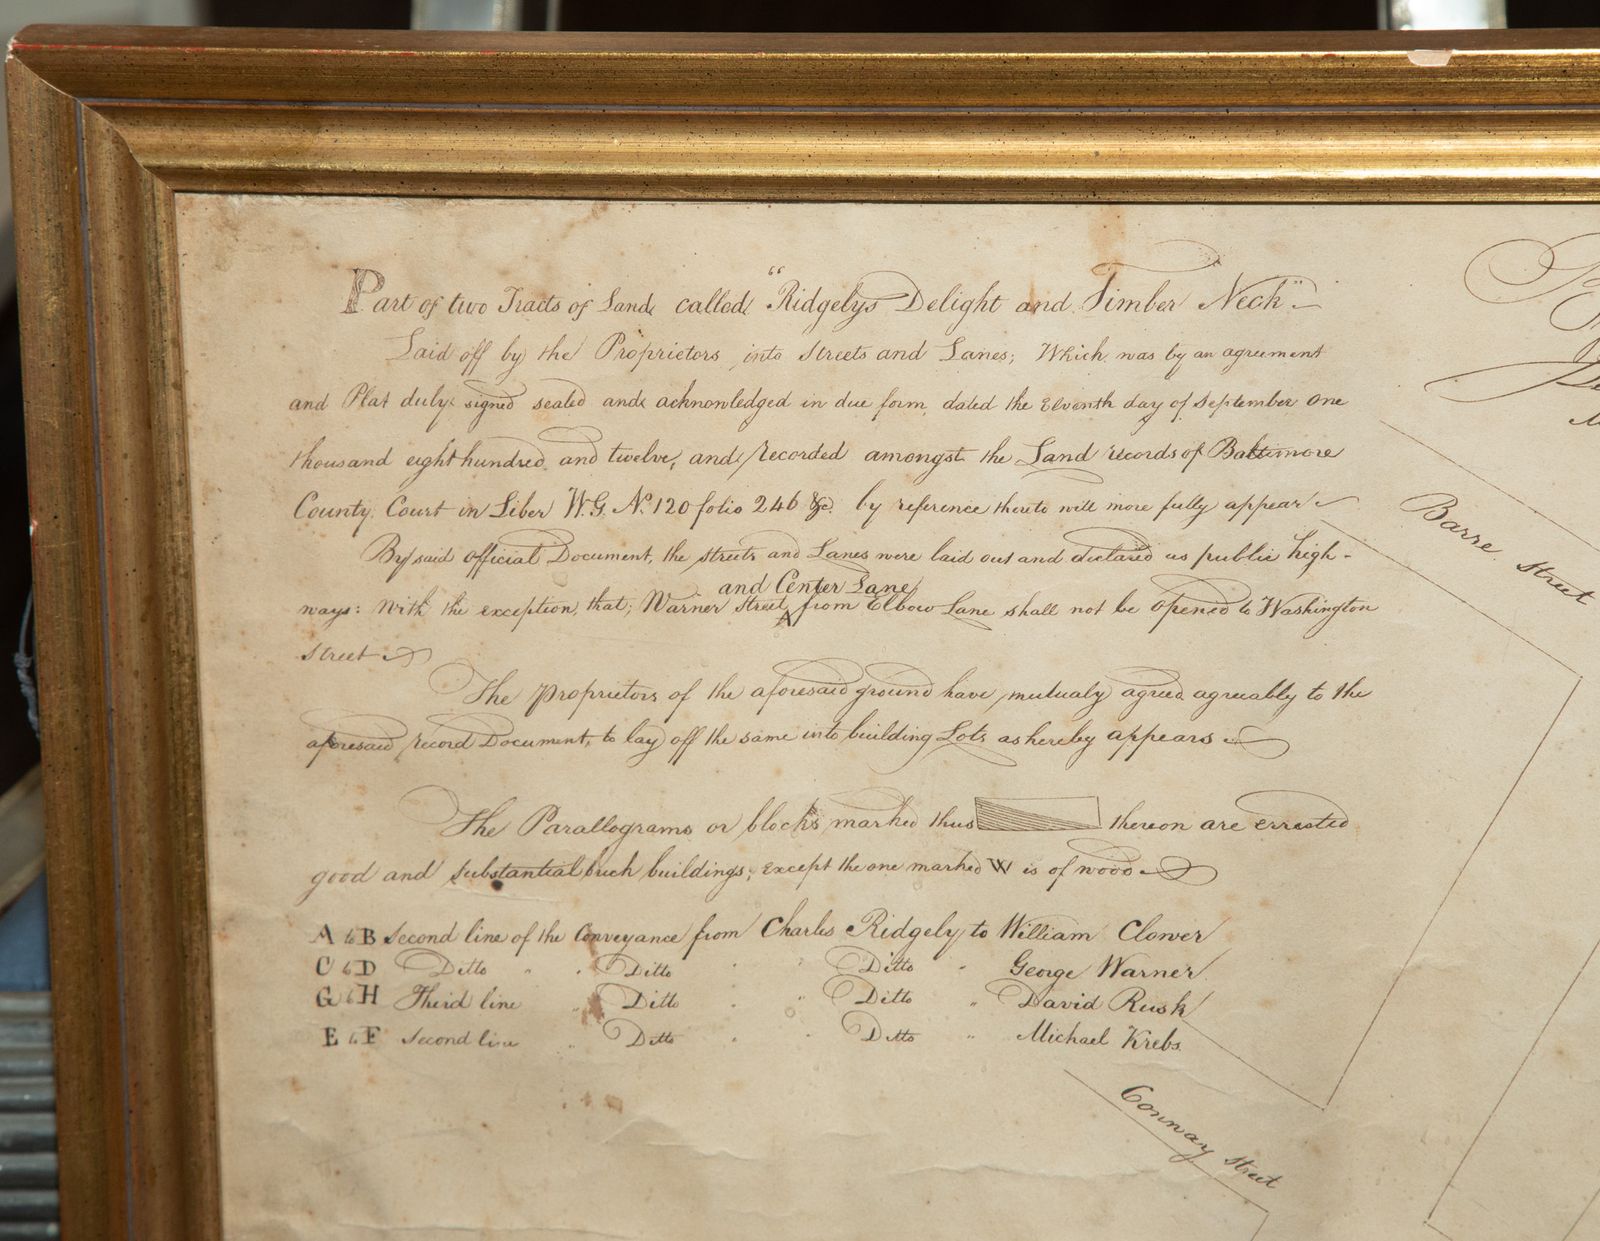 Part of two Tracts of Land called "Ridgelys Delight and Timber Neck"
Laid off by the Proprietors into Streets and Lanes; Which was by an agreement
and Plat duly signed sealed and acknowledged in due form, dated the Eleventh day of September One
thousand eight hundred and twelve, and recorded amongst the Land records of Baltimore
County Court in Liber W.G. No. 120 folio 246 &c. by reference thereto will more fully appear
By said Official Document, the streets and Lanes were laid out and declared as public high-
and Center Lane
ways: With the exception, that; Warner Street ^ from Elbow Lane shall not be opened to Washington
Street
The Proprietors of the aforesaid ground have mutualy agreed agreeably to the
aforesaid record Document, to lay off the same into building Lots as hereby appears
The Parallograms or blocks marked thus thereon are errected
good and substantial brick buildings; except the one marked W is of wood
A to B Second line of the Conveyance from Charles Ridgely to William Clower
C to D Ditto " " Ditto " " Ditto " George Warner
G to H Third line " Ditto " " Ditto " David Rusk
E to F Second line " Ditto " " Ditto " Michael Krebs
Barre Street
Connay Street